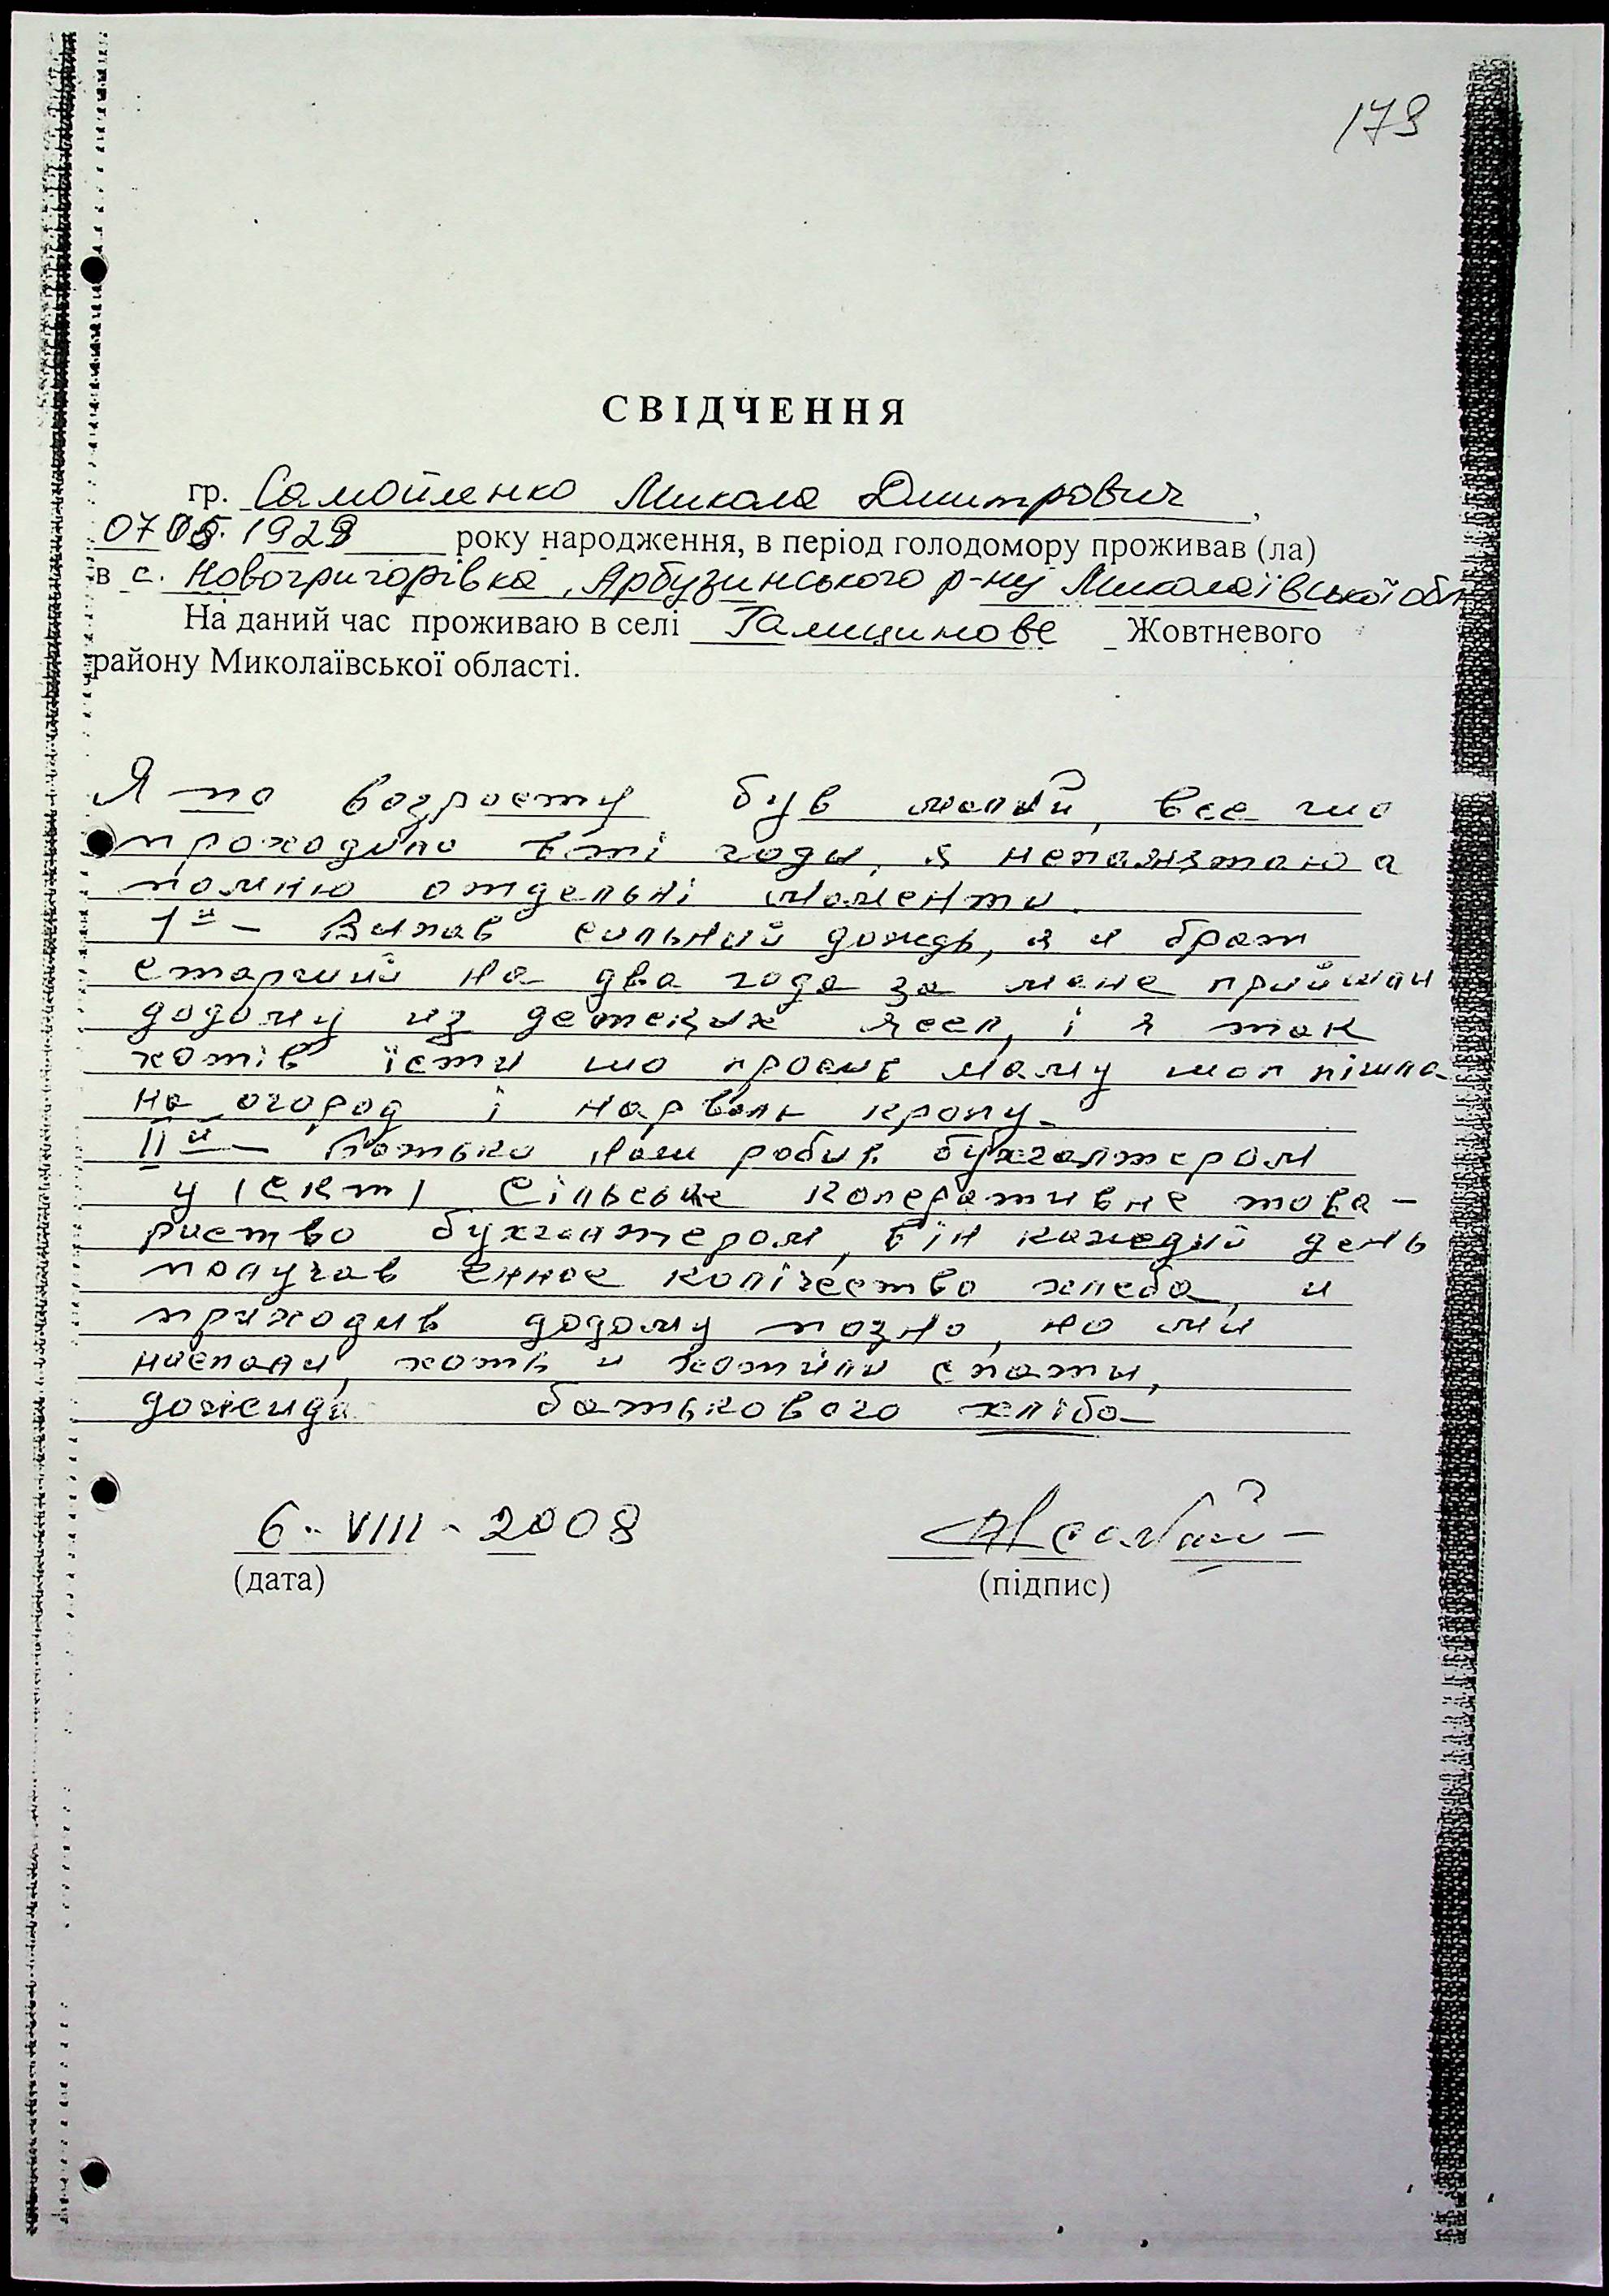 179
СВІДЧЕННЯ
гр. Самойленко Микола Дмитрович,
07 05. 1929 року народження, в період голодомору проживав (ла)
в с. Новогригорівка, Арбузинського р-ну Миколаївської обл
На даний час проживаю в селі Галицинове Жовтневого
району Миколаївської області.
Я по возрасту був малий, все шо
проходило в ті годы, я непамятаю а
помню отдельні моменти.
1й – Випав сильний дождь, я и брат
старший на два года за мене прийшли
додому из детских ясел, і я так
хотів їсти шо просив маму шоп пішла
на огород і нарвала кропу.
IIй – Батько наш робив бухгалтером
у (скт) Сільське коперативне това-
риство бухгалтером, він каждий день
получав енное колічество хлеба, и
приходив додому позно, но ми
неспали, хоть и хотили спати,
батькового хліба
6. VIII - 2008
(дата)
(підпис)